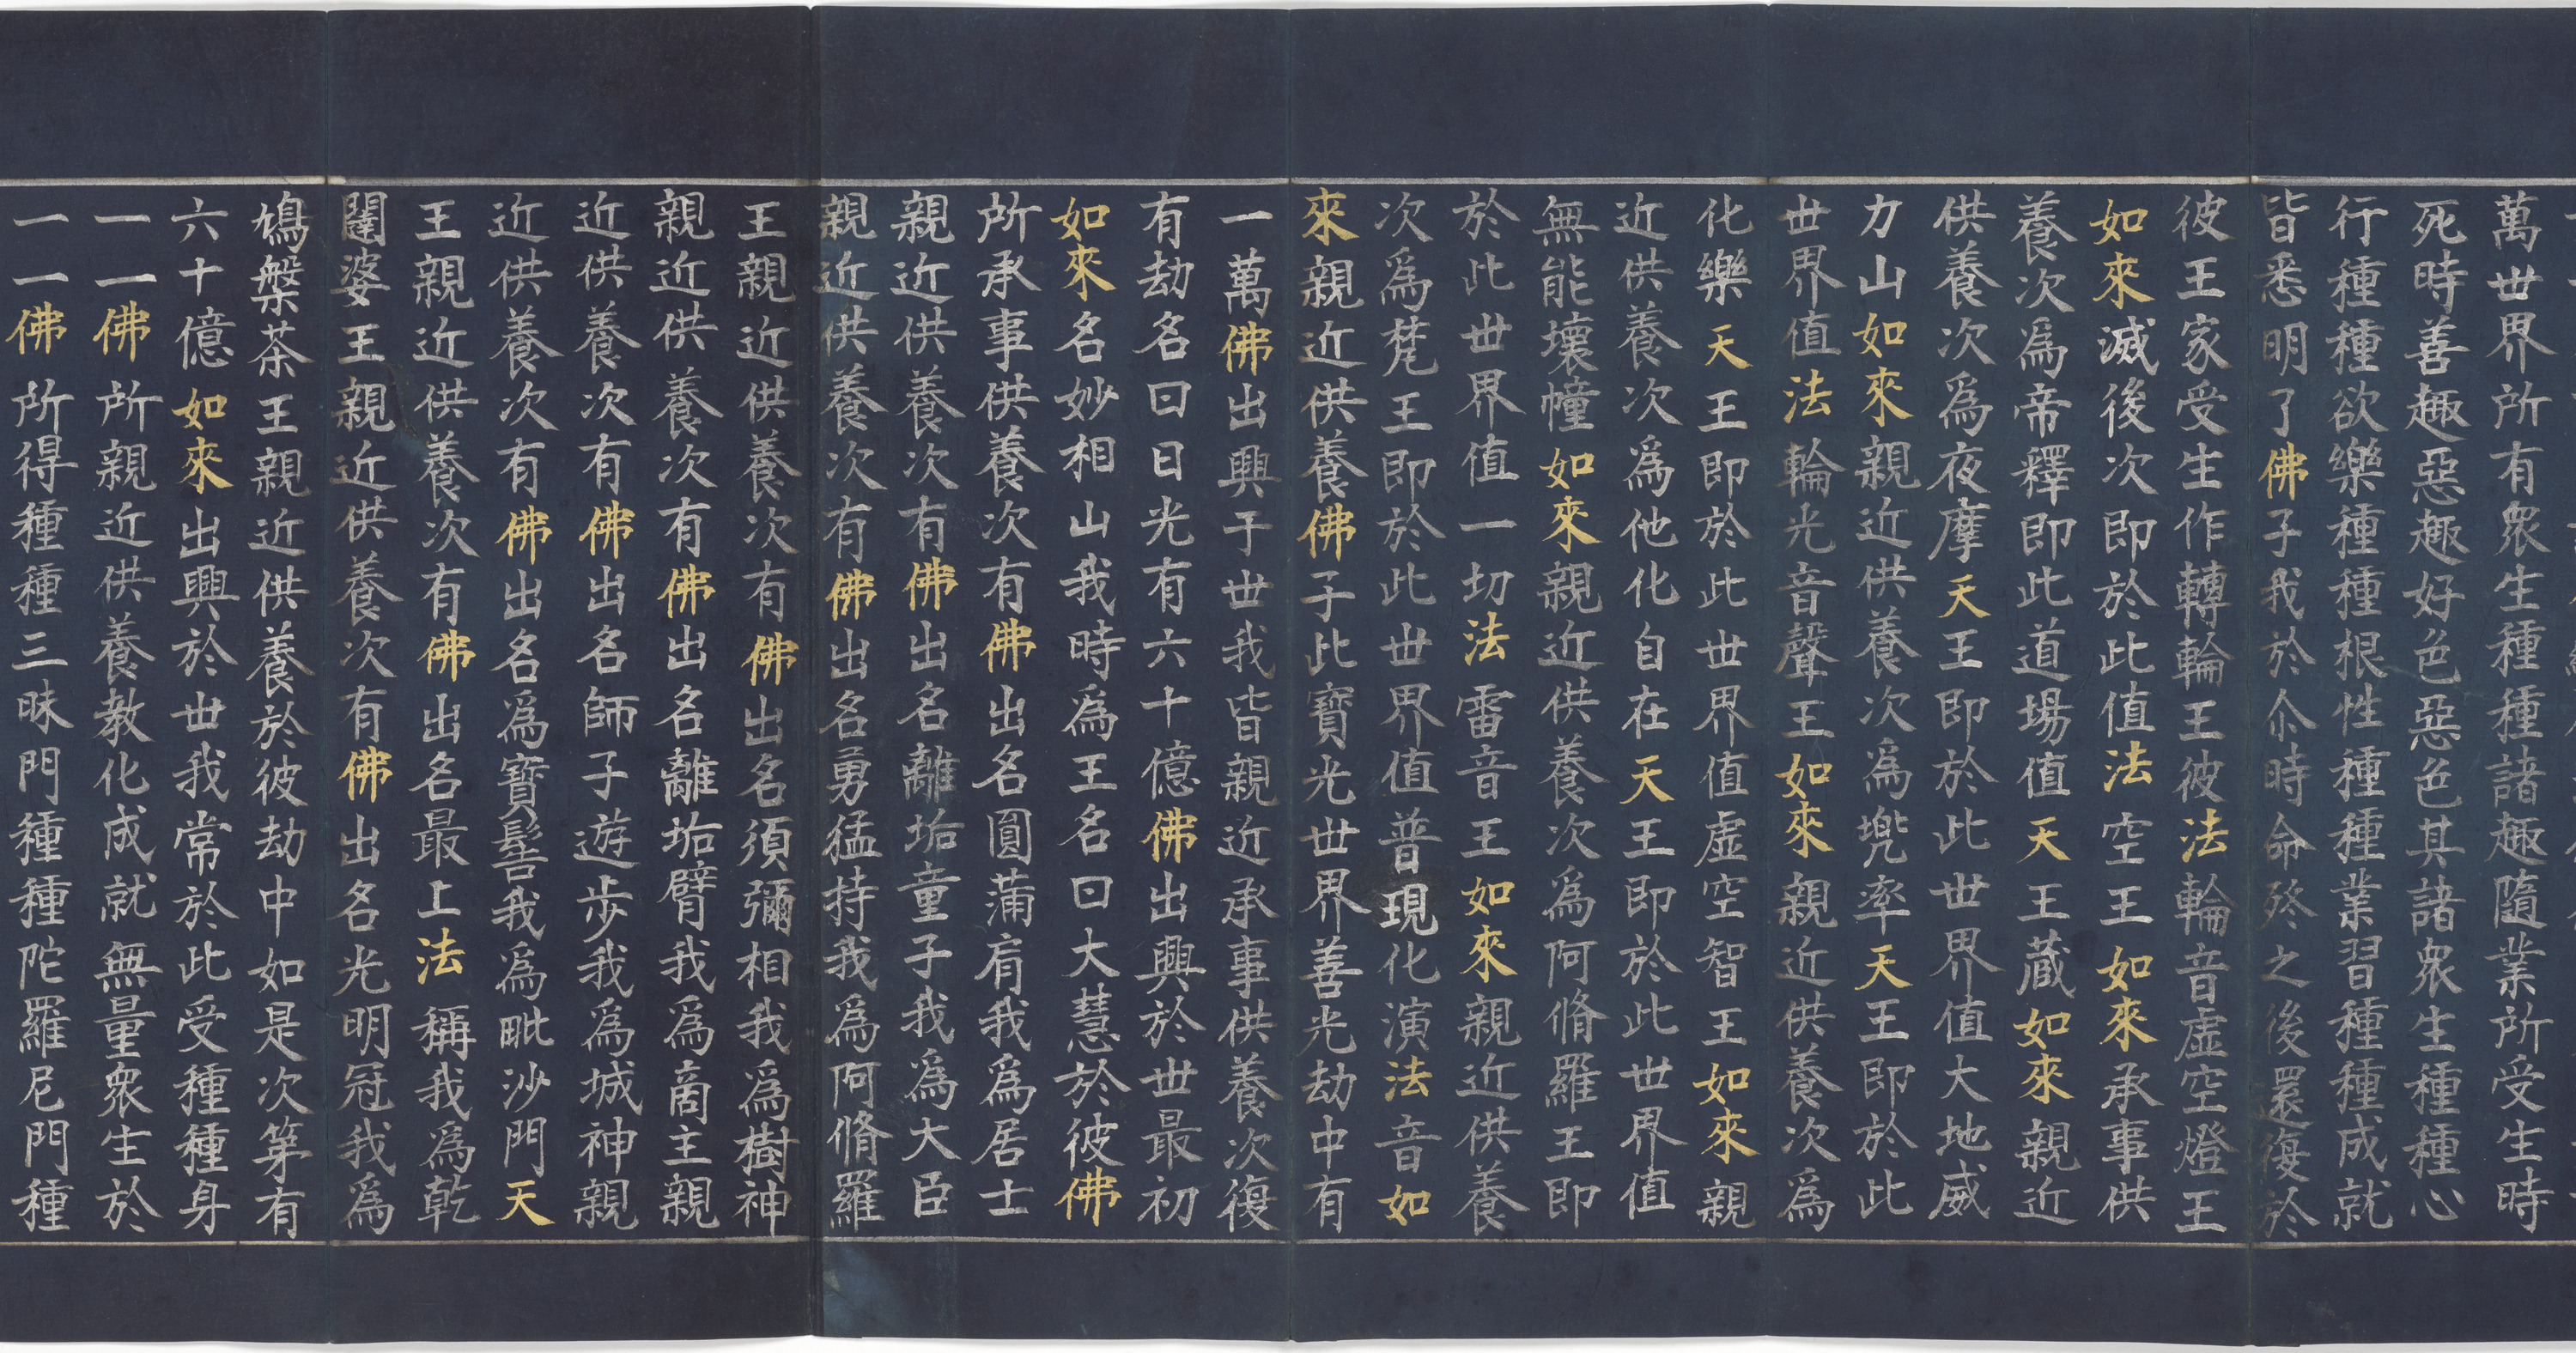 萬世界所有眾生種種諸趣隨業所受生時
死時善趣惡趣好色惡色其諸眾生種種心
行種種欲樂種種根性種種業習種種成就
皆悉明了佛子我於尒時命終之後還復於
彼王家受生作轉輪王彼法輪音虛空燈王
如來滅後次即於此值法空王如來承事供
養次為帝釋即此道場值天王藏如來親近
供養次為夜摩天王即於此世界值大地威
力山如來親近供養次為兜率天王即於此
世界值法輪光音聲王如來親近供養次為
化樂天王即於此世界值虛空智王如來親
近供養次為他化自在天王即於此世界值
無能壞幢如來親近供養次為阿脩羅王即
於此世界值一切法雷音王如來親近供養
次為梵王即於此世界值普現化演法音如
來親近供養佛子此寶光世界善光劫中有
一萬佛出興于世我皆親近承事供養次復
有劫名曰日光有六十億佛出興於世最初
如來名妙相山我時為王名曰大慧於彼佛
所承事供養次有佛出名圓蒲肩我為居士
親近供養次有佛出名離垢童子我為大臣
親近供養次有佛出名勇猛持我為阿脩羅
王親近供養次有佛出名須彌相我為樹神
親近供養次有佛出名離垢臂我為商主親
近供養次有佛出名師子遊步我為城神親
近供養次有佛出名為寶髻我為毗沙門天
王親近供養次有佛出名最上法稱我為乾
闥婆王親近供養次有佛出名光明冠我為
鳩槃茶王親近供養於彼劫中如是次第有
六十億如來出興於世我常於此受種種身
一一佛所親近供養教化成就無量眾生於
一一佛所得種種三昧門種種陀羅尼門種